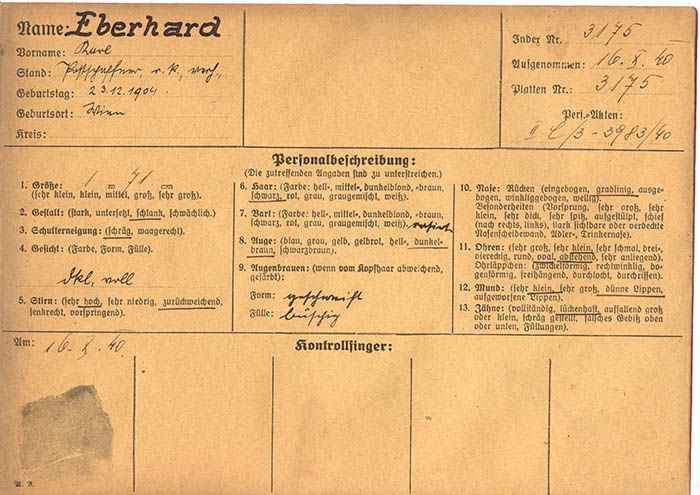 Name: Eberhard
Vorname: Karl
Stand: Postschaffner, r. k., verh.,
Geburtstag: 23.12.1904.
Geburtsort: Wien
Kreis:
Index Nr. 3175
Aufgenommen: 16. X. 40
Platten Nr. 3175
Pers.-Akten:
II E/3 - 3983/40
Personalbeschreibung:
(Die zutreffenden Angaben sind zu unterstreichen.)
1. Größe: 1 m 71 cm
(sehr klein, klein, mittel, groß, sehr groß).
2. Gestalt: (stark, untersetzt, schlank, schwächlich).
3. Schulterneigung: (schräg, waagerecht).
4. Gesicht: (Farbe, Form, Fülle).
dkl, voll
5. Stirn: (sehr hoch, sehr niedrig, zurückweichend,
senkrecht, vorspringend).
6. Haar: (Farbe: hell-, mittel-, dunkelblond, -braun,
schwarz, rot, grau, graugemischt, weiß).
7. Bart: (Farbe: hell-, mittel-, dunkelblond, -braun,
schwarz, rot, grau, graugemischt, weiß). rasiert
8. Auge: (blau, grau, gelb, gelbrot, hell-, dunkel-
braun, schwarzbraun).
9. Augenbrauen: (wenn vom Kopfhaar abweichend,
gefärbt):
Form: geschweift
Fülle: buschig
10. Nase: Rücken (eingebogen, gradlinig, ausge-
bogen, winkliggebogen, wellig).
Besonderheiten (Vorsprung, sehr groß, sehr
klein, sehr dick, sehr spitz, aufgestülpt, schief
(nach rechts, links), stark sichtbare oder verdeckte
Nasenscheidewand, Adler-, Trinkernase).
11. Ohren: (sehr groß, sehr klein, sehr schmal, drei-
eckig, rund, oval, abstehend, sehr anliegend).
Ohrläppchen: (zwickelförmig, rechtwinklig, bo-
genförmig, freihängend, durchlocht, durchrissen).
12. Mund: (sehr klein, sehr groß, dünne Lippen,
aufgeworfene Lippen).
13. Zähne: (vollständig, lückenhaft, auffallend groß
oder klein, schräg gestellt, falsches Gebiß oben
oder unten, Füllungen).
Am: 16. X. 40.
Kontrollfinger: